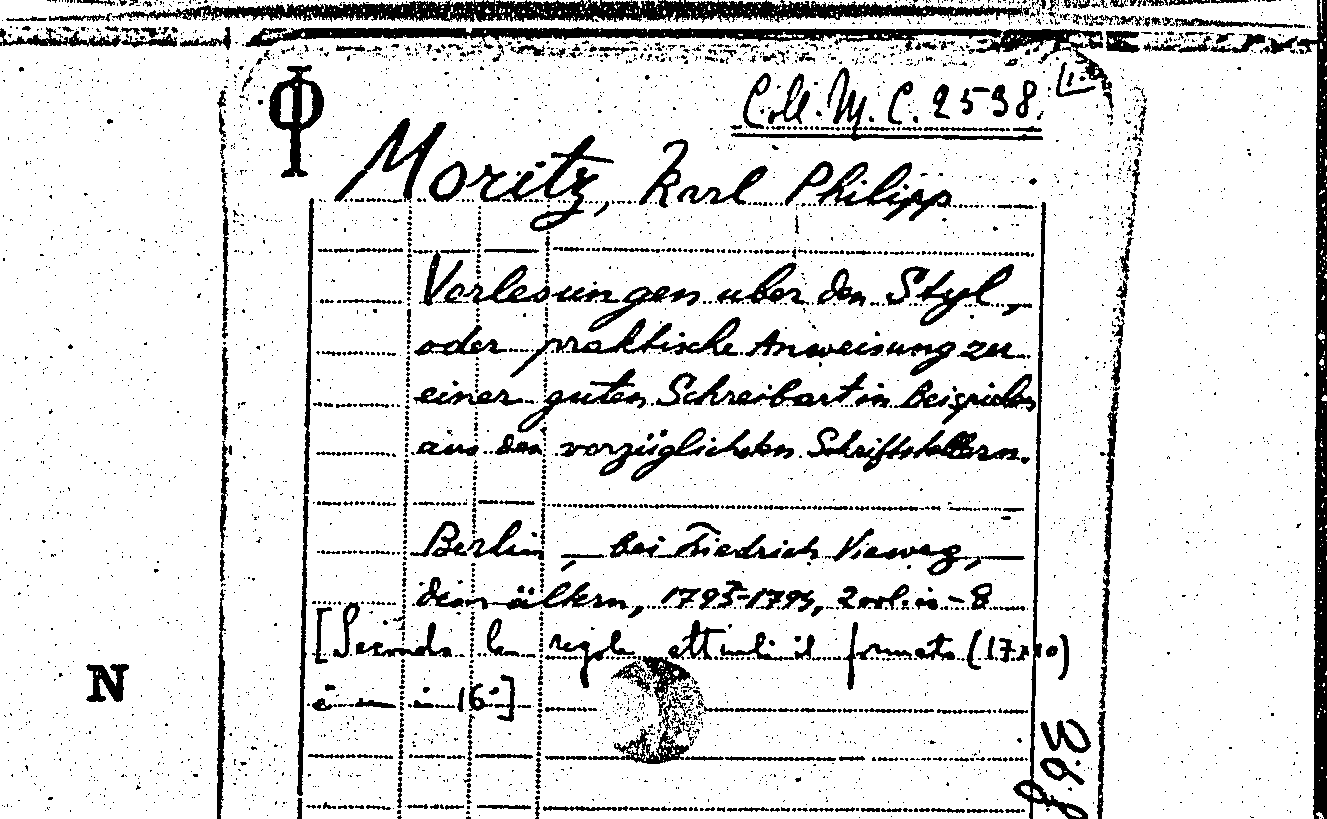 Φ
Coll. M. C. 2538.
Moritz, Karl Philipp
Vorlesungen über den Styl,
oder praktische Anweisung zu
einer guten Schreibart in Beispielen
aus den vorzüglichsten Schriftstellern.
Berlin, bei Friedrich Vieweg,
dem ältern, 1793-1794, 2 vol. in-8
[Secondo le regole attuali il formato (17x10)
è in 16°]
N